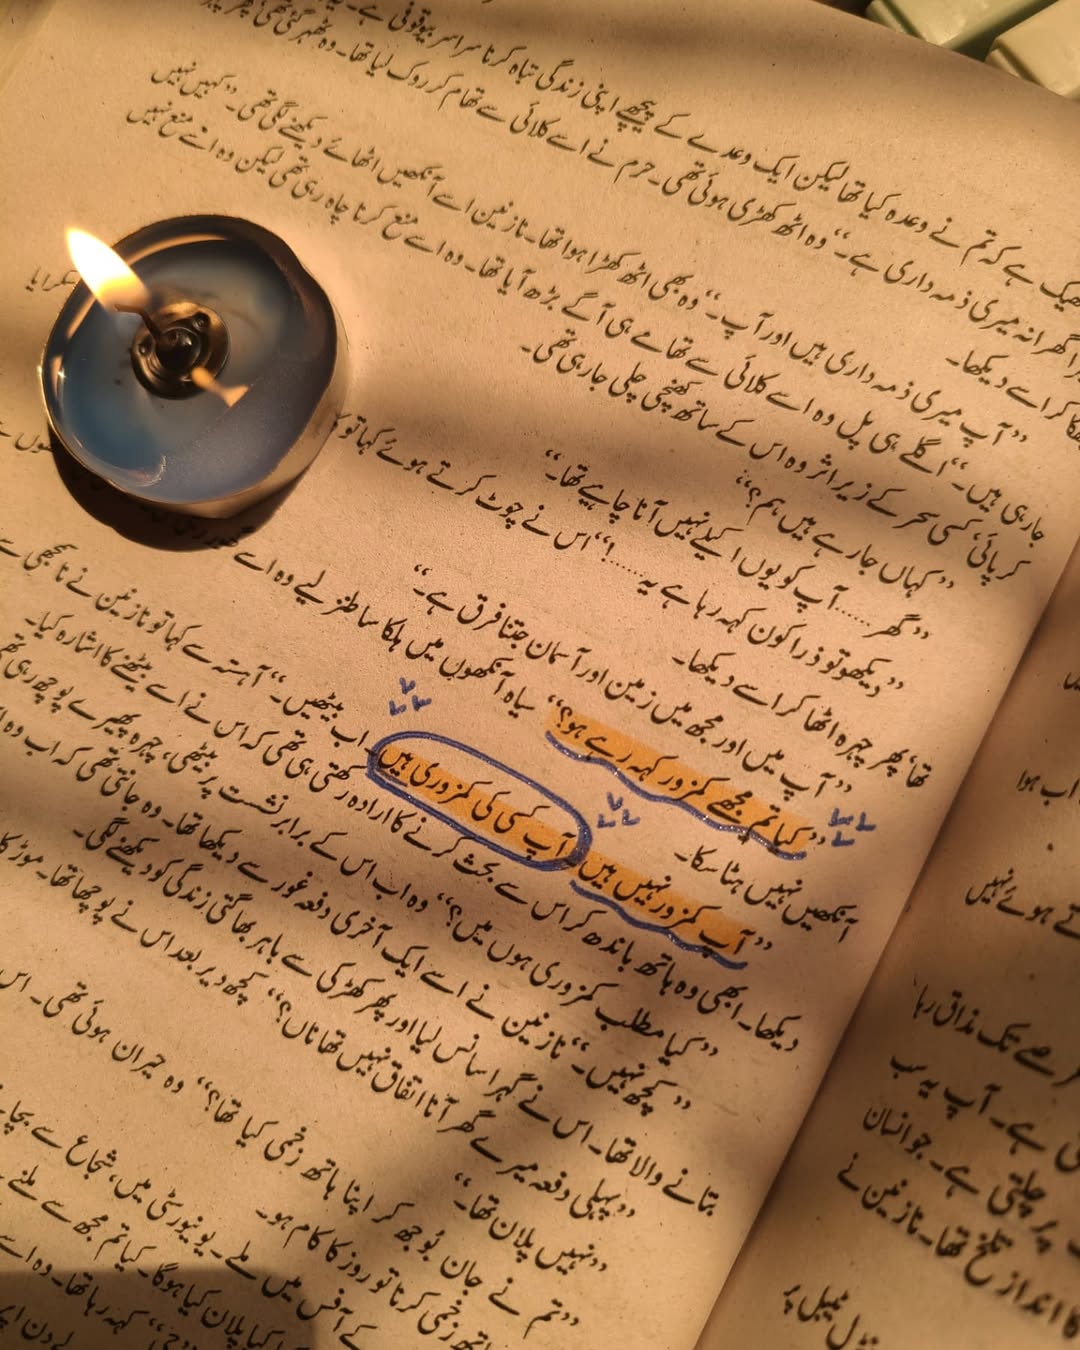 کے پیچھے اپنی زندگی تباہ کرنا سراسر بیوقوفی ہے۔
ٹھیک ہے کہ تم نے وعدہ کیا تھا لیکن ایک وعدے
گھرانہ میری ذمہ داری ہے۔“ وہ اٹھ کھڑی ہوئی تھی۔ حرم نے اسے کلائی سے تھام کر روک لیا تھا۔ وہ ٹھہر گئی تھی
کر اسے دیکھا۔
”آپ میری ذمہ داری ہیں اور آپ۔“ وہ بھی اٹھ کھڑا ہوا تھا۔ نازنین اسے آنکھیں اٹھائے دیکھنے لگی تھی۔ ”کہیں نہیں
جا رہی ہیں۔“ اگلے ہی پل وہ اسے کلائی سے تھامے ہی آگے بڑھ آیا تھا۔ وہ اسے منع کرنا چاہ رہی تھی لیکن وہ اسے منع نہیں
کر پائی، کسی سحر کے زیر اثر وہ اس کے ساتھ کھنچی چلی جا رہی تھی۔
”کہاں جا رہے ہیں ہم؟“
”گھر......آپ کو یوں اکیلے نہیں آنا چاہیے تھا۔“
”دیکھو تو ذرا کون کہہ رہا ہے یہ......!“ اس نے چوٹ کرتے ہوئے کہا تو
تھا، پھر چہرہ اٹھا کر اسے دیکھا۔
”آپ میں اور مجھ میں زمین اور آسمان جتنا فرق ہے۔“
”کیا تم مجھے کمزور کہہ رہے ہو؟“ سیاہ آنکھوں میں ہلکا سا طنز لیے وہ اسے
آنکھیں نہیں ہٹا سکا۔
”آپ کمزور نہیں ہیں۔ آپ کسی کی کمزوری ہیں۔ اب بیٹھیں۔“ آہستہ سے کہا تو نازنین نے ناسمجھی سے
دیکھا۔ ابھی وہ ہاتھ باندھ کر اس سے بحث کرنے کا ارادہ رکھتی ہی تھی کہ اس نے اسے بیٹھنے کا اشارہ کیا۔
”کیا مطلب کمزوری ہوں میں؟“ وہ اب اس کے برابر نشست پر بیٹھی، چہرہ پھیرے پوچھ رہی تھی
”کچھ نہیں۔“ نازنین نے اسے ایک آخری دفعہ غور سے دیکھا تھا۔ وہ جانتی تھی کہ اب وہ
بتانے والا تھا۔ اس نے گہرا سانس لیا اور پھر کھڑکی سے باہر بھاگتی زندگی کو دیکھنے لگی۔
”پہلی دفعہ میرے گھر آنا اتفاق نہیں تھا ناں؟“ کچھ دیر بعد اس نے پوچھا تھا۔ موڑ
”نہیں پلان تھا۔“
”تم نے جان بوجھ کر اپنا ہاتھ زخمی کیا تھا؟“ وہ حیران ہوئی تھی۔ اس
زخمی کرنا تو روز کا کام ہو۔
کے آفس میں ملے۔ یونیورسٹی میں، شجاع سے بچا
کیا پلان کیا ہوگا۔ کیا تم مجھ سے ملنے
کہہ رہا تھا۔ وہ اسے
اب ہوا
تے ہوئے نہیں
تک مذاق رہا
ہے۔ آپ یہ سب
پر چلتی ہے۔ جو انسان
کا انداز تلخ تھا۔ نازنین نے
ٹیبل پر